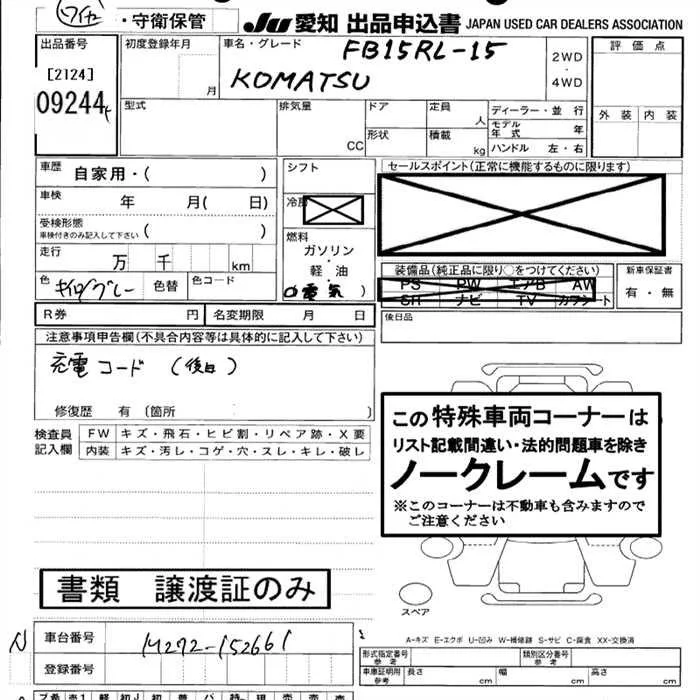 ・守衛保管
JU 愛知 出品申込書 JAPAN USED CAR DEALERS ASSOCIATION
出品番号
[2124]
09244
初度登録年月
月
車名・グレード
FB15RL-15
KOMATSU
2WD
・
4WD
評価点
外装 内装
型式
排気量
CC
ドア
形状
定員
人
積載
kg
ディーラー・並行
モデル年式 年
ハンドル 左・右
車歴 自家用・( )
車検 年 月( 日)
受検形態
車検付きのみ記入して下さい ( )
走行 万 千 km
色 色替 色コード
シフト
冷房
燃料
ガソリン
・
軽・油
電気 )
セールスポイント(正常に機能するものに限ります)
装備品(純正品に限り○をつけてください)
PS PW エアB AW
SR ナビ TV カワシート
新車保証書
有・無
R券 円 名変期限 月 日
後日品
注意事項申告欄(不具合内容等は具体的に記入して下さい)
充電コード (後日)
修復歴 有 (箇所 )
検査員
記入欄
FW キズ・飛石・ヒビ割・リペア跡・X要
内装 キズ・汚レ・コゲ・穴・スレ・キレ・破レ
この特殊車両コーナーは
リスト記載間違い・法的問題車を除き
ノークレームです
※このコーナーは不動車も含みますので
ご注意ください
書類 譲渡証のみ
スペア
N 車台番号 M272-152661
登録番号
A-キズ E-エクボ U-凹み W-補修跡 S-サビ C-腐食 XX-交換済
形式指定番号
参考
類別区分番号
参考
車庫証明用
参考
長さ 幅 高さ
cm cm cm